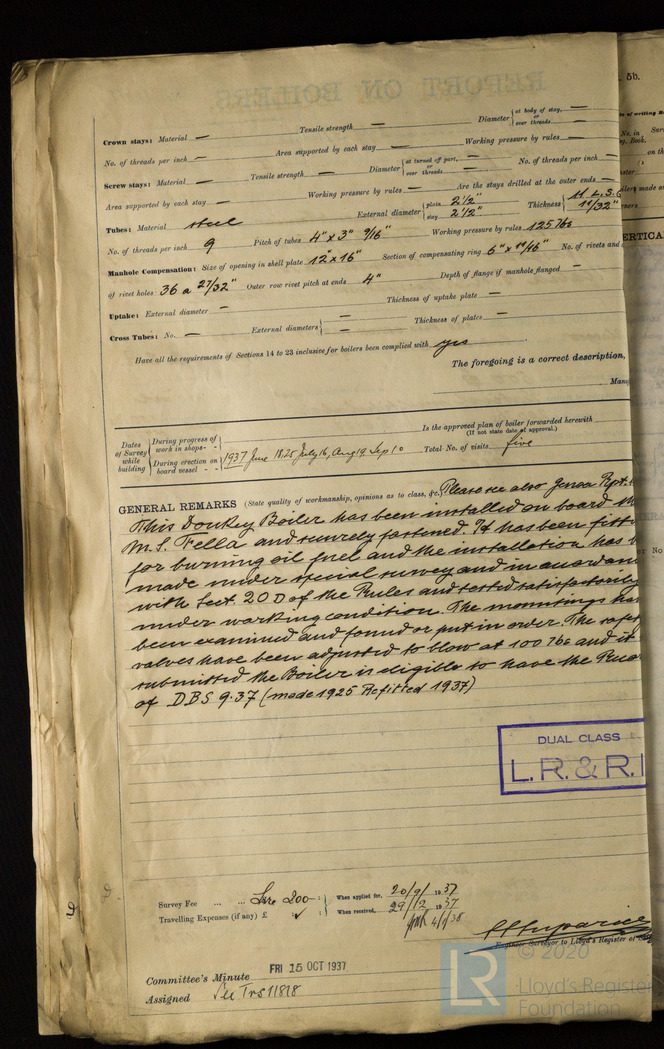 5b.
Crown stays: Material — Tensile strength — Diameter { at body of stay, — or over threads —
No. of threads per inch — Area supported by each stay — Working pressure by rules —
Screw stays: Material — Tensile strength — Diameter { at turned off part, — or over threads — No. of threads per inch —
Area supported by each stay — Working pressure by rules — Are the stays drilled at the outer ends —
Tubes: Material steel External diameter { plain 2½" stay 2½" Thickness { 11 L.S.G 11/32"
No. of threads per inch 9 Pitch of tubes 4" x 3" 9/16" Working pressure by rules 125 lbs
Manhole Compensation: Size of opening in shell plate 12" x 16" Section of compensating ring 6" x 11/16" No. of rivets and
of rivet holes 36 a 27/32" Outer row rivet pitch at ends 4" Depth of flange if manhole flanged —
Uptake: External diameter — Thickness of uptake plate —
Cross Tubes: No. — External diameters { — — Thickness of plates —
Have all the requirements of Sections 14 to 23 inclusive for boilers been complied with yes
The foregoing is a correct description,
Dates of Survey while building { During progress of work in shops - - During erection on board vessel - - } 1937 June 18.25 July 16, Aug 19 Sep 10
Is the approved plan of boiler forwarded herewith
(If not state date of approval.)
Total No. of visits five
GENERAL REMARKS (State quality of workmanship, opinions as to class, &c.) Please see also Genoa Rept.
This Donkey Boiler has been installed on board the
M.S. Fella and securely fastened. It has been fitted
for burning oil fuel and the installation has
made under special survey and in
with Sect. 20 D of the Rules and tested satisfactorily
under working condition. The mountings
been examined and found or put in order. The
valves have been adjusted to blow at 100 lbs and it
submitted the Boiler is eligible to have the
of DBS 9.37 (made 1925 Refitted 1937)
DUAL CLASS
L.R. & R.I
Survey Fee ... ... Lire 200 : When applied for, 20/9/1937
Travelling Expenses (if any) £ : When received, 29/12 1937
4/1/38
Engineer Surveyor to Lloyd's Register of
Committee's Minute FRI 15 OCT 1937
Assigned See Trs 11818
LR
© 2020
Lloyd's Register
Foundation